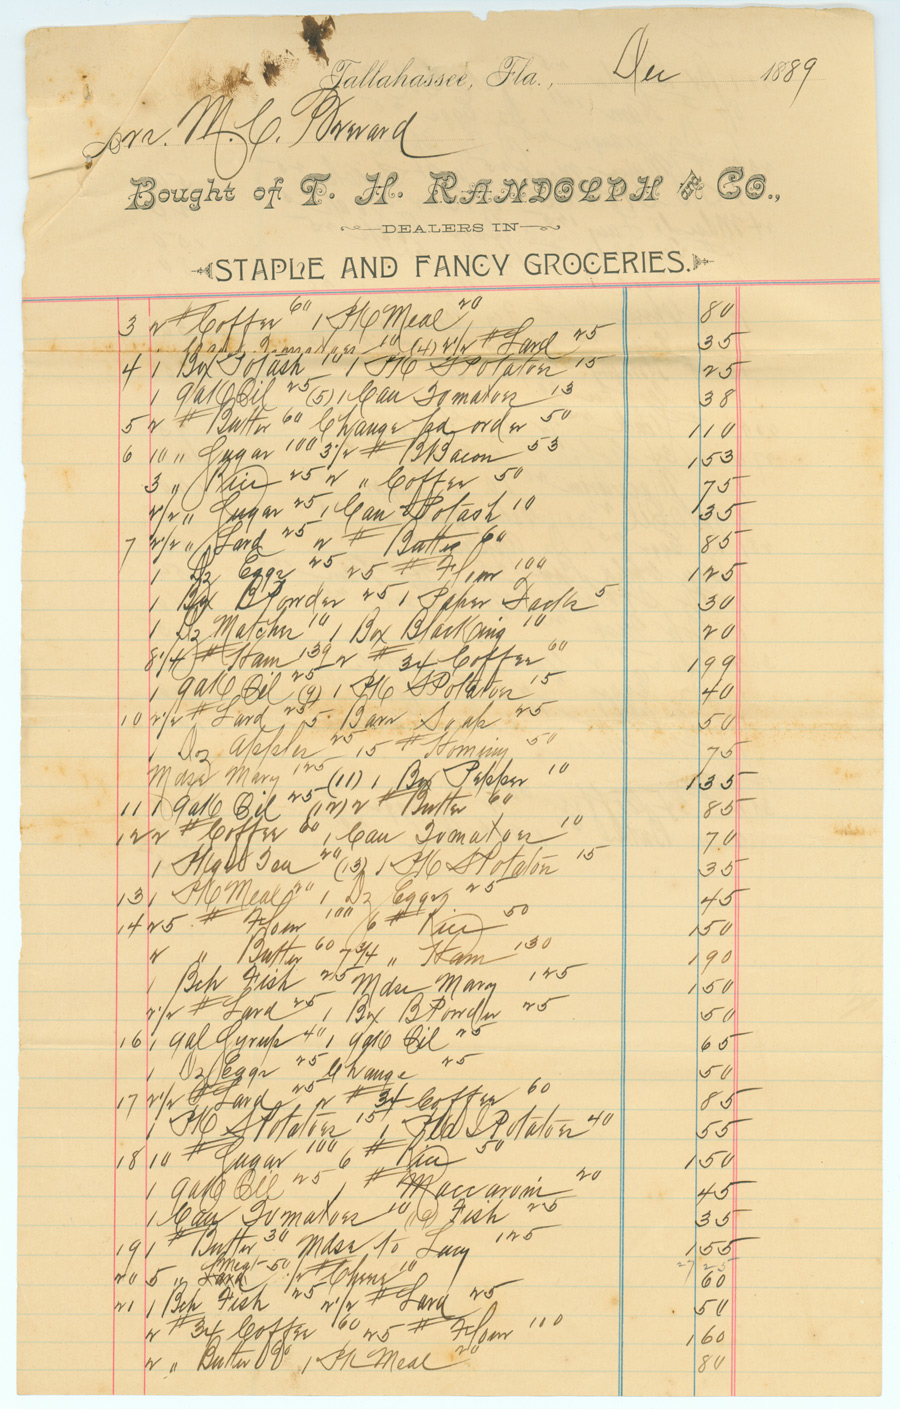 Tallahassee, Fla., Dec 1889
Mrs. M. C. Brevard
Bought of T. H. RANDOLPH & CO.,
DEALERS IN
STAPLE AND FANCY GROCERIES.
3 2 # Coffee 60 1 PK Meal 20 80
1 Can Tomatoes 10 (4) 2 1/2 # Lard 25 35
4 1 Box Potash 10 1 PK S Potatoes 15 25
1 gal K Oil 25 (5) 1 Can Tomatoes 13 38
5 2 # Butter 60 Change pd order 50 110
6 10 " Sugar 100 3 1/2 # B Bacon 53 153
3 " Rice 25 2 " Coffee 50 75
2 1/2 " Sugar 25 1 Can Potash 10 35
7 2 1/2 " Lard 25 2 # Butter 60 85
1 Dz Eggs 25 25 # Flour 100 125
1 Bx B Powder 25 1 Paper Tacks 5 30
1 Dz Matches 10 1 Box Blacking 10 20
8 3/4 # Ham 139 2 # 34 Coffee 60 199
1 gal K Oil 25 (9) 1 PK S Potatoes 15 40
10 2 1/2 # Lard 25 5 Bars Soap 25 50
1 Doz apples 25 15 # Hominy 50 75
Mdse Mary 125 (11) 1 Box Pepper 10 135
11 1 gal K Oil 25 (12) 2 # Butter 60 85
12 2 # Coffee 60 1 Can Tomatoes 10 70
1 Tea 20 (13) 1 PK S Potatoes 15 35
13 1 PK Meal 20 1 Dz Eggs 25 45
14 25 # Flour 100 6 # Rice 50 150
2 " Butter 60 7 3/4 " Ham 130 190
1 Bch Fish 25 Mdse Mary 125 150
2 1/2 # Lard 25 1 Bx B Powder 25 50
16 1 gal Syrup 40 1 gal K Oil 25 65
1 Dz Eggs 25 Change 25 50
17 2 1/2 # Lard 25 2 # 34 Coffee 60 85
1 PK S Potatoes 15 1 S Potatoes 40 55
18 10 # Sugar 100 6 # Rice 50 150
1 gal K Oil 25 1 # Maccaroni 20 45
1 Can Tomatoes 10 Fish 25 35
19 1 # Butter 30 Mdse to Lucy 125 155
27 25
20 5 " Meat 50 1/2 " Cheese 10 60
21 1 Bch Fish 25 2 1/2 # Lard 25 50
2 # 34 Coffee 60 25 # Flour 100 160
2 " Butter 60 1 PK Meal 20 80